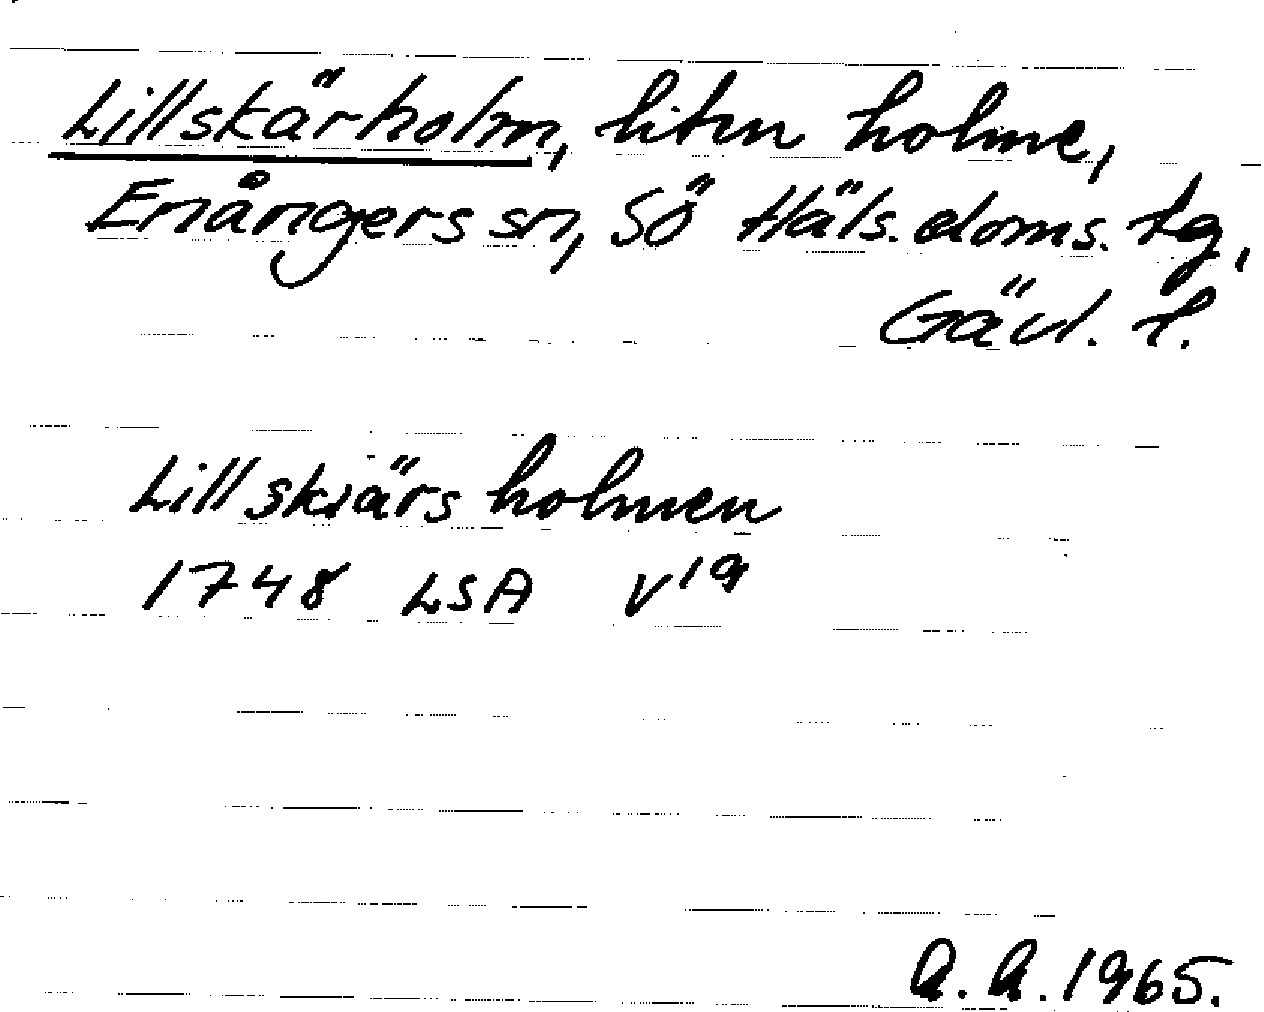 Lillskärholm, liten holme,
Enångers sn, Sö Häls. doms. tg,
Gävl. l.
Lillskiärs holmen
1748 LSA V19
A. A. 1965.